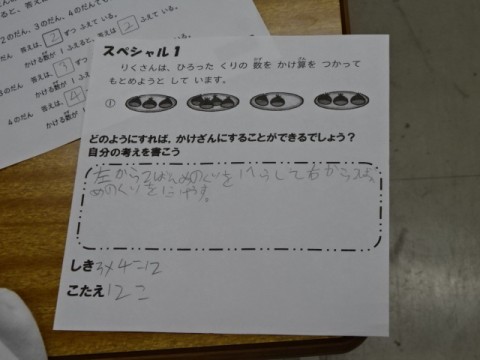 2のだん、3のだん、4のだんでも
答えは、2ずつ ふえて いる。
かける数が 1 ふえると、答えは、2 ふえて いる。
のだん 答えは、3ずつ ふ
かける数が 1 ふ
4 のだん 答えは、4
かける数が
スペシャル1
りくさんは、ひろった くりの 数を かけ算を つかって
もとめようと して います。
①
どのようにすれば、かけざんにすることができるでしょう？
自分の考えを書こう
左から2ばんめのくりを1へらして右から2ばん
めのくりを1ふやす。
しき3×4=12
こたえ12こ